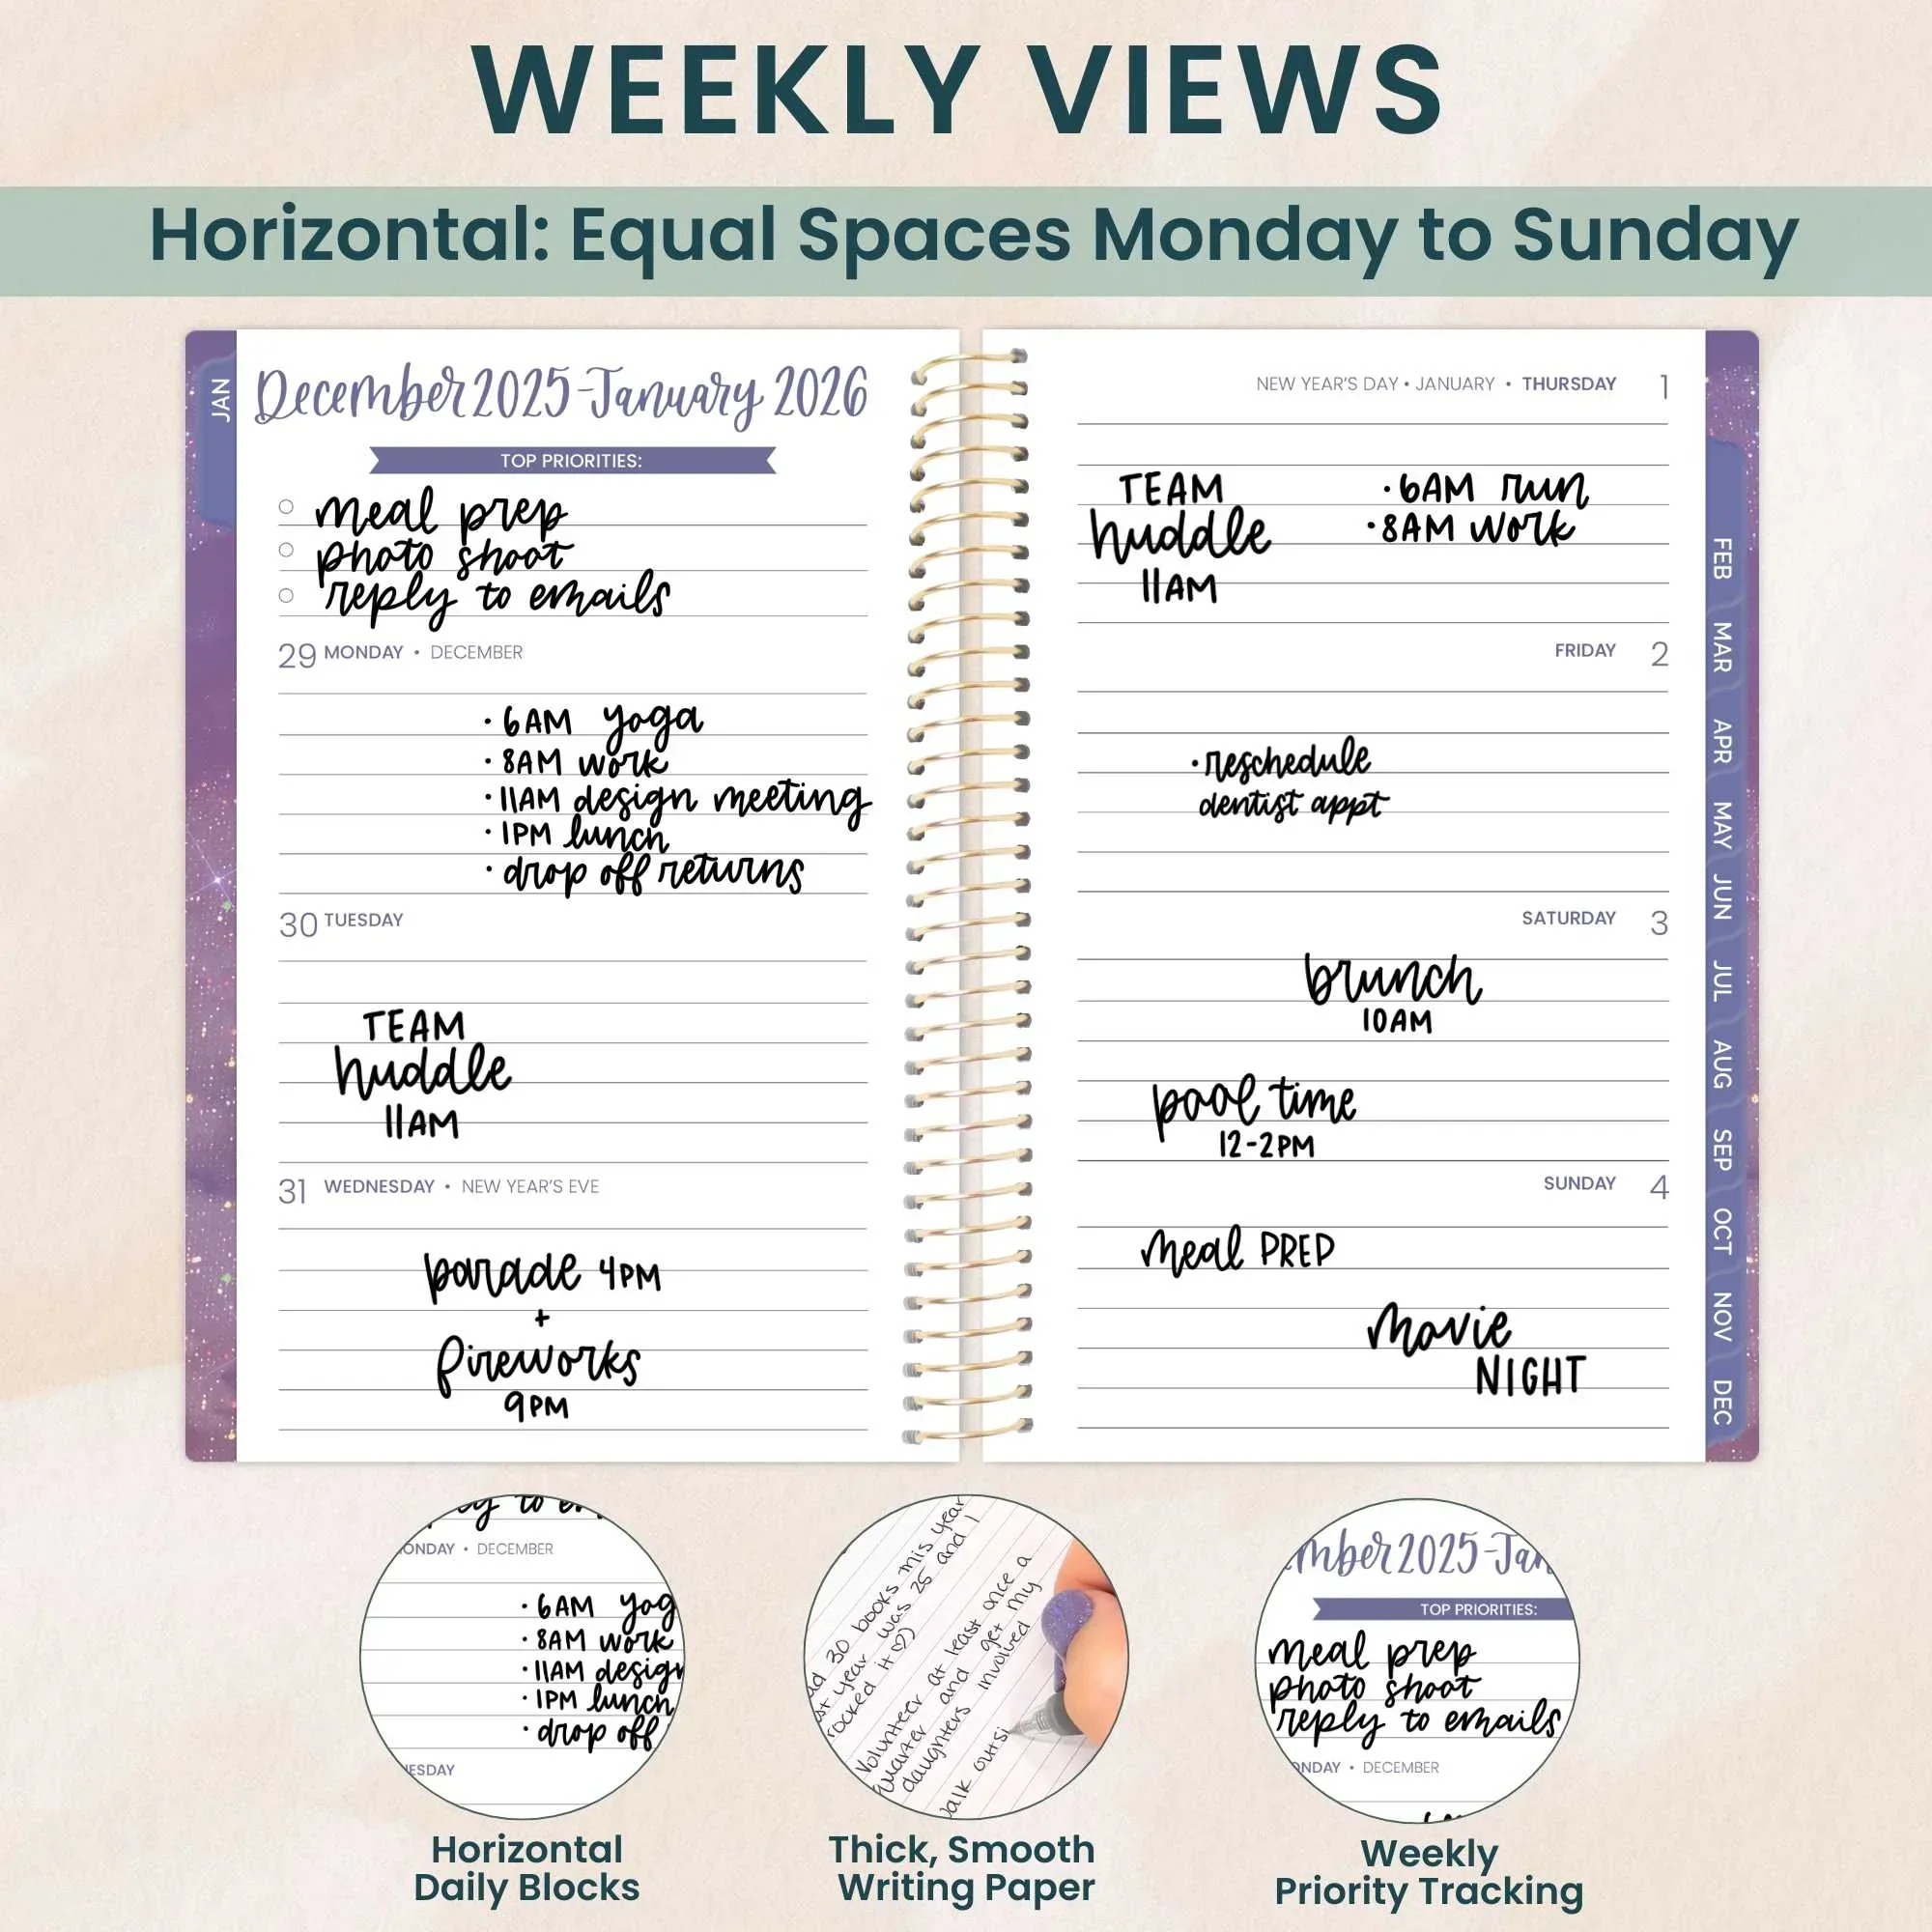 WEEKLY VIEWS
Horizontal: Equal Spaces Monday to Sunday
JAN
December 2025-January 2026
TOP PRIORITIES:
meal prep
photo shoot
reply to emails
29 MONDAY • DECEMBER
• 6AM yoga
• 8AM work
• 11AM design meeting
• 1PM lunch
• drop off returns
30 TUESDAY
TEAM
huddle
11AM
31 WEDNESDAY • NEW YEAR'S EVE
parade 4PM
+
fireworks
9PM
NEW YEAR'S DAY • JANUARY • THURSDAY 1
TEAM
huddle
11AM
• 6AM run
• 8AM work
FRIDAY 2
• reschedule
dentist appt
SATURDAY 3
brunch
10AM
pool time
12-2PM
SUNDAY 4
meal PREP
movie
NIGHT
FEB
MAR
APR
MAY
JUN
JUL
AUG
SEP
OCT
NOV
DEC
to
ONDAY • DECEMBER
• 6AM yog
• 8AM work
• 11AM design
• 1PM lunch
• drop off
ESDAY
Horizontal
Daily Blocks
30 books this year
st year was 25 and I
rocked it ♡)
Volunteer at least once a
quarter and get my
daughters involved
alk outsi
Thick, Smooth
Writing Paper
mber 2025-Jan
TOP PRIORITIES:
meal prep
photo shoot
reply to emails
ONDAY • DECEMBER
Weekly
Priority Tracking